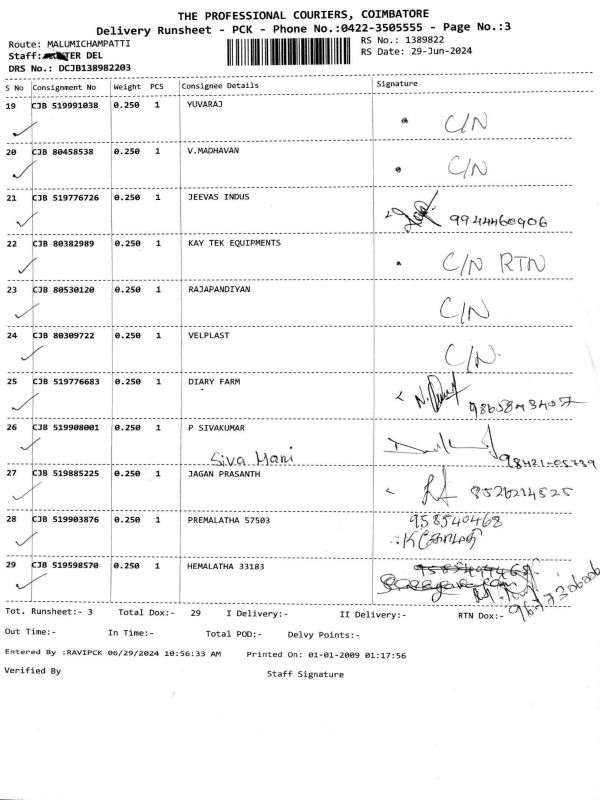 THE PROFESSIONAL COURIERS, COIMBATORE
Delivery Runsheet - PCK - Phone No.:0422-3505555 - Page No.:3
Route: MALUMICHAMPATTI
RS No.: 1389822
Staff: TER DEL
RS Date: 29-Jun-2024
DRS No.: DCJB138982203
S No Consignment No Weight PCS Consignee Details Signature
19 CJB 519991038 0.250 1 YUVARAJ C/N
20 CJB 80458538 0.250 1 V.MADHAVAN C/N
21 CJB 519776726 0.250 1 JEEVAS INDUS 9944460906
22 CJB 80382989 0.250 1 KAY TEK EQUIPMENTS C/N RTN
23 CJB 80530120 0.250 1 RAJAPANDIYAN C/N
24 CJB 80309722 0.250 1 VELPLAST C/N.
25 CJB 519776683 0.250 1 DIARY FARM
26 CJB 519908001 0.250 1 P SIVAKUMAR
Siva Mani 98421-05739
27 CJB 519885225 0.250 1 JAGAN PRASANTH 8526214525
28 CJB 519903876 0.250 1 PREMALATHA 57503 958540468
29 CJB 519598570 0.250 1 HEMALATHA 33183
9677306006
Tot. Runsheet:- 3 Total Dox:- 29 I Delivery:- II Delivery:- RTN Dox:-
Out Time:- In Time:- Total POD:- Delvy Points:-
Entered By :RAVIPCK 06/29/2024 10:56:33 AM Printed On: 01-01-2009 01:17:56
Verified By Staff Signature